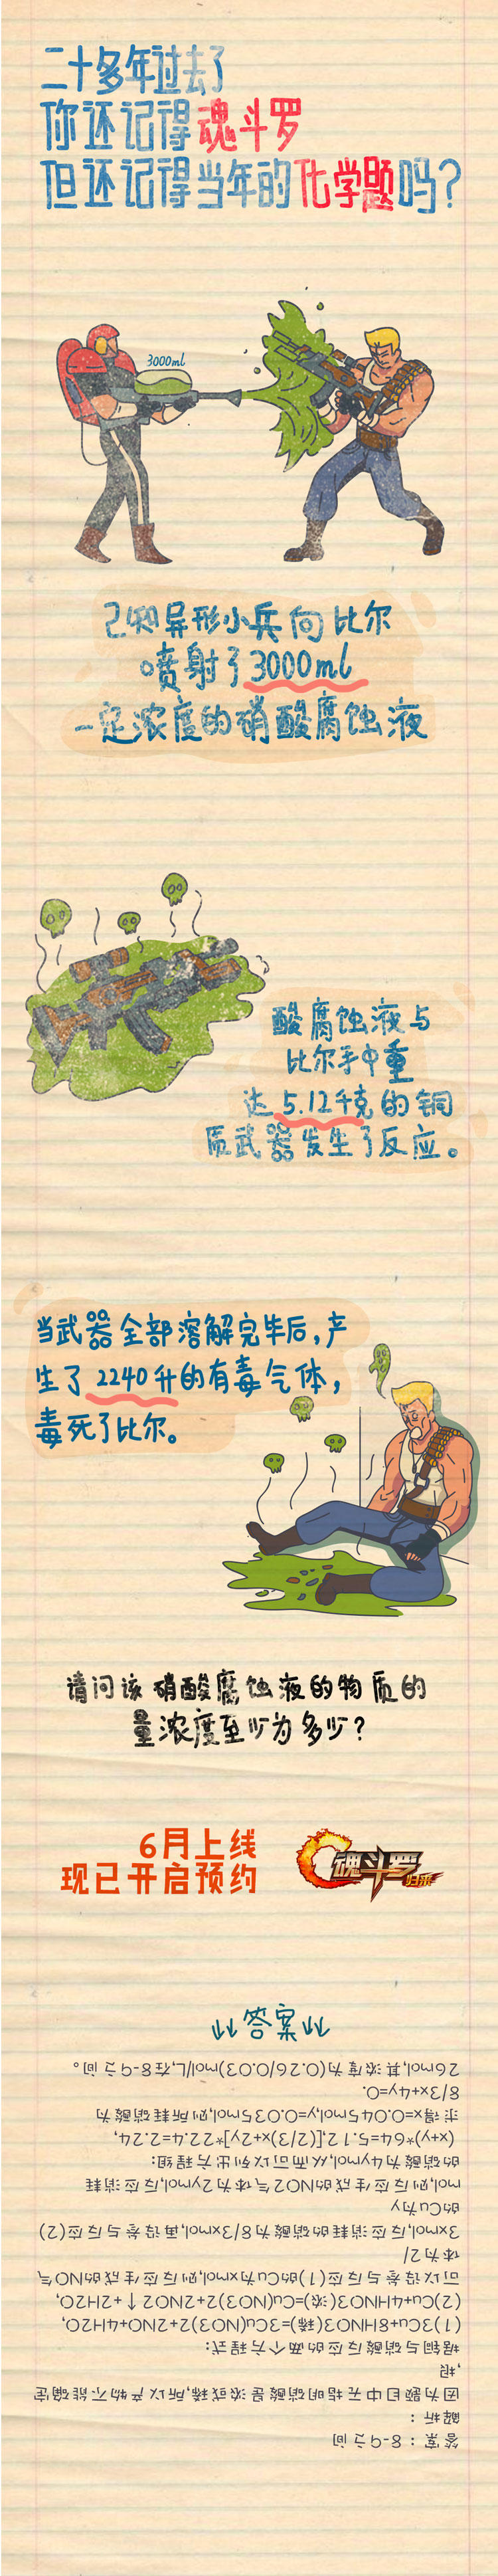 二十多年过去了
你还记得魂斗罗
但还记得当年的化学题吗?
3000ml
已知异形小兵向比尔
喷射了3000ml
一定浓度的硝酸腐蚀液
酸腐蚀液与
比尔手中重
达5.12千克的铜
质武器发生了反应。
当武器全部溶解完毕后,产
生了2240升的有毒气体,
毒死了比尔。
请问该硝酸腐蚀液的物质的
量浓度至少为多少?
6月上线
现已开启预约
魂斗罗
归来
答案
答案：8-9之间
解析：
因为题目中无指明硝酸是浓或稀,所以产物不能确定
,根
据铜与硝酸反应的两个方程式:
(1)3Cu+8HNO3(稀)=3Cu(NO3)2+2NO+4H2O,
(2)Cu+4HNO3(浓)=Cu(NO3)2+2NO2↑+2H2O,
可以设参与反应(1)的Cu为xmol,则反应生成的NO气
体为2/
3xmol,反应消耗的硝酸为8/3xmol,再设参与反应(2)
的Cu为y
mol,则反应生成的NO2气体为2ymol,反应消耗
的硝酸为4ymol,从而可以列出方程组:
(x+y)*64=5.12,[(2/3)x+2y]*22.4=2.24,
求得x=0.045mol,y=0.035mol,则所耗硝酸为
8/3x+4y=0.
26mol,其浓度为(0.26/0.03)mol/L,在8-9之间。